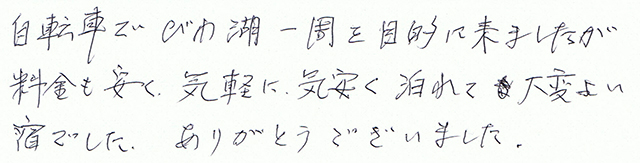 自転車でびわ湖一周を目的に来ましたが
料金も安く、気軽に、気安く泊れて大変よい
宿でした. ありがとうございました.